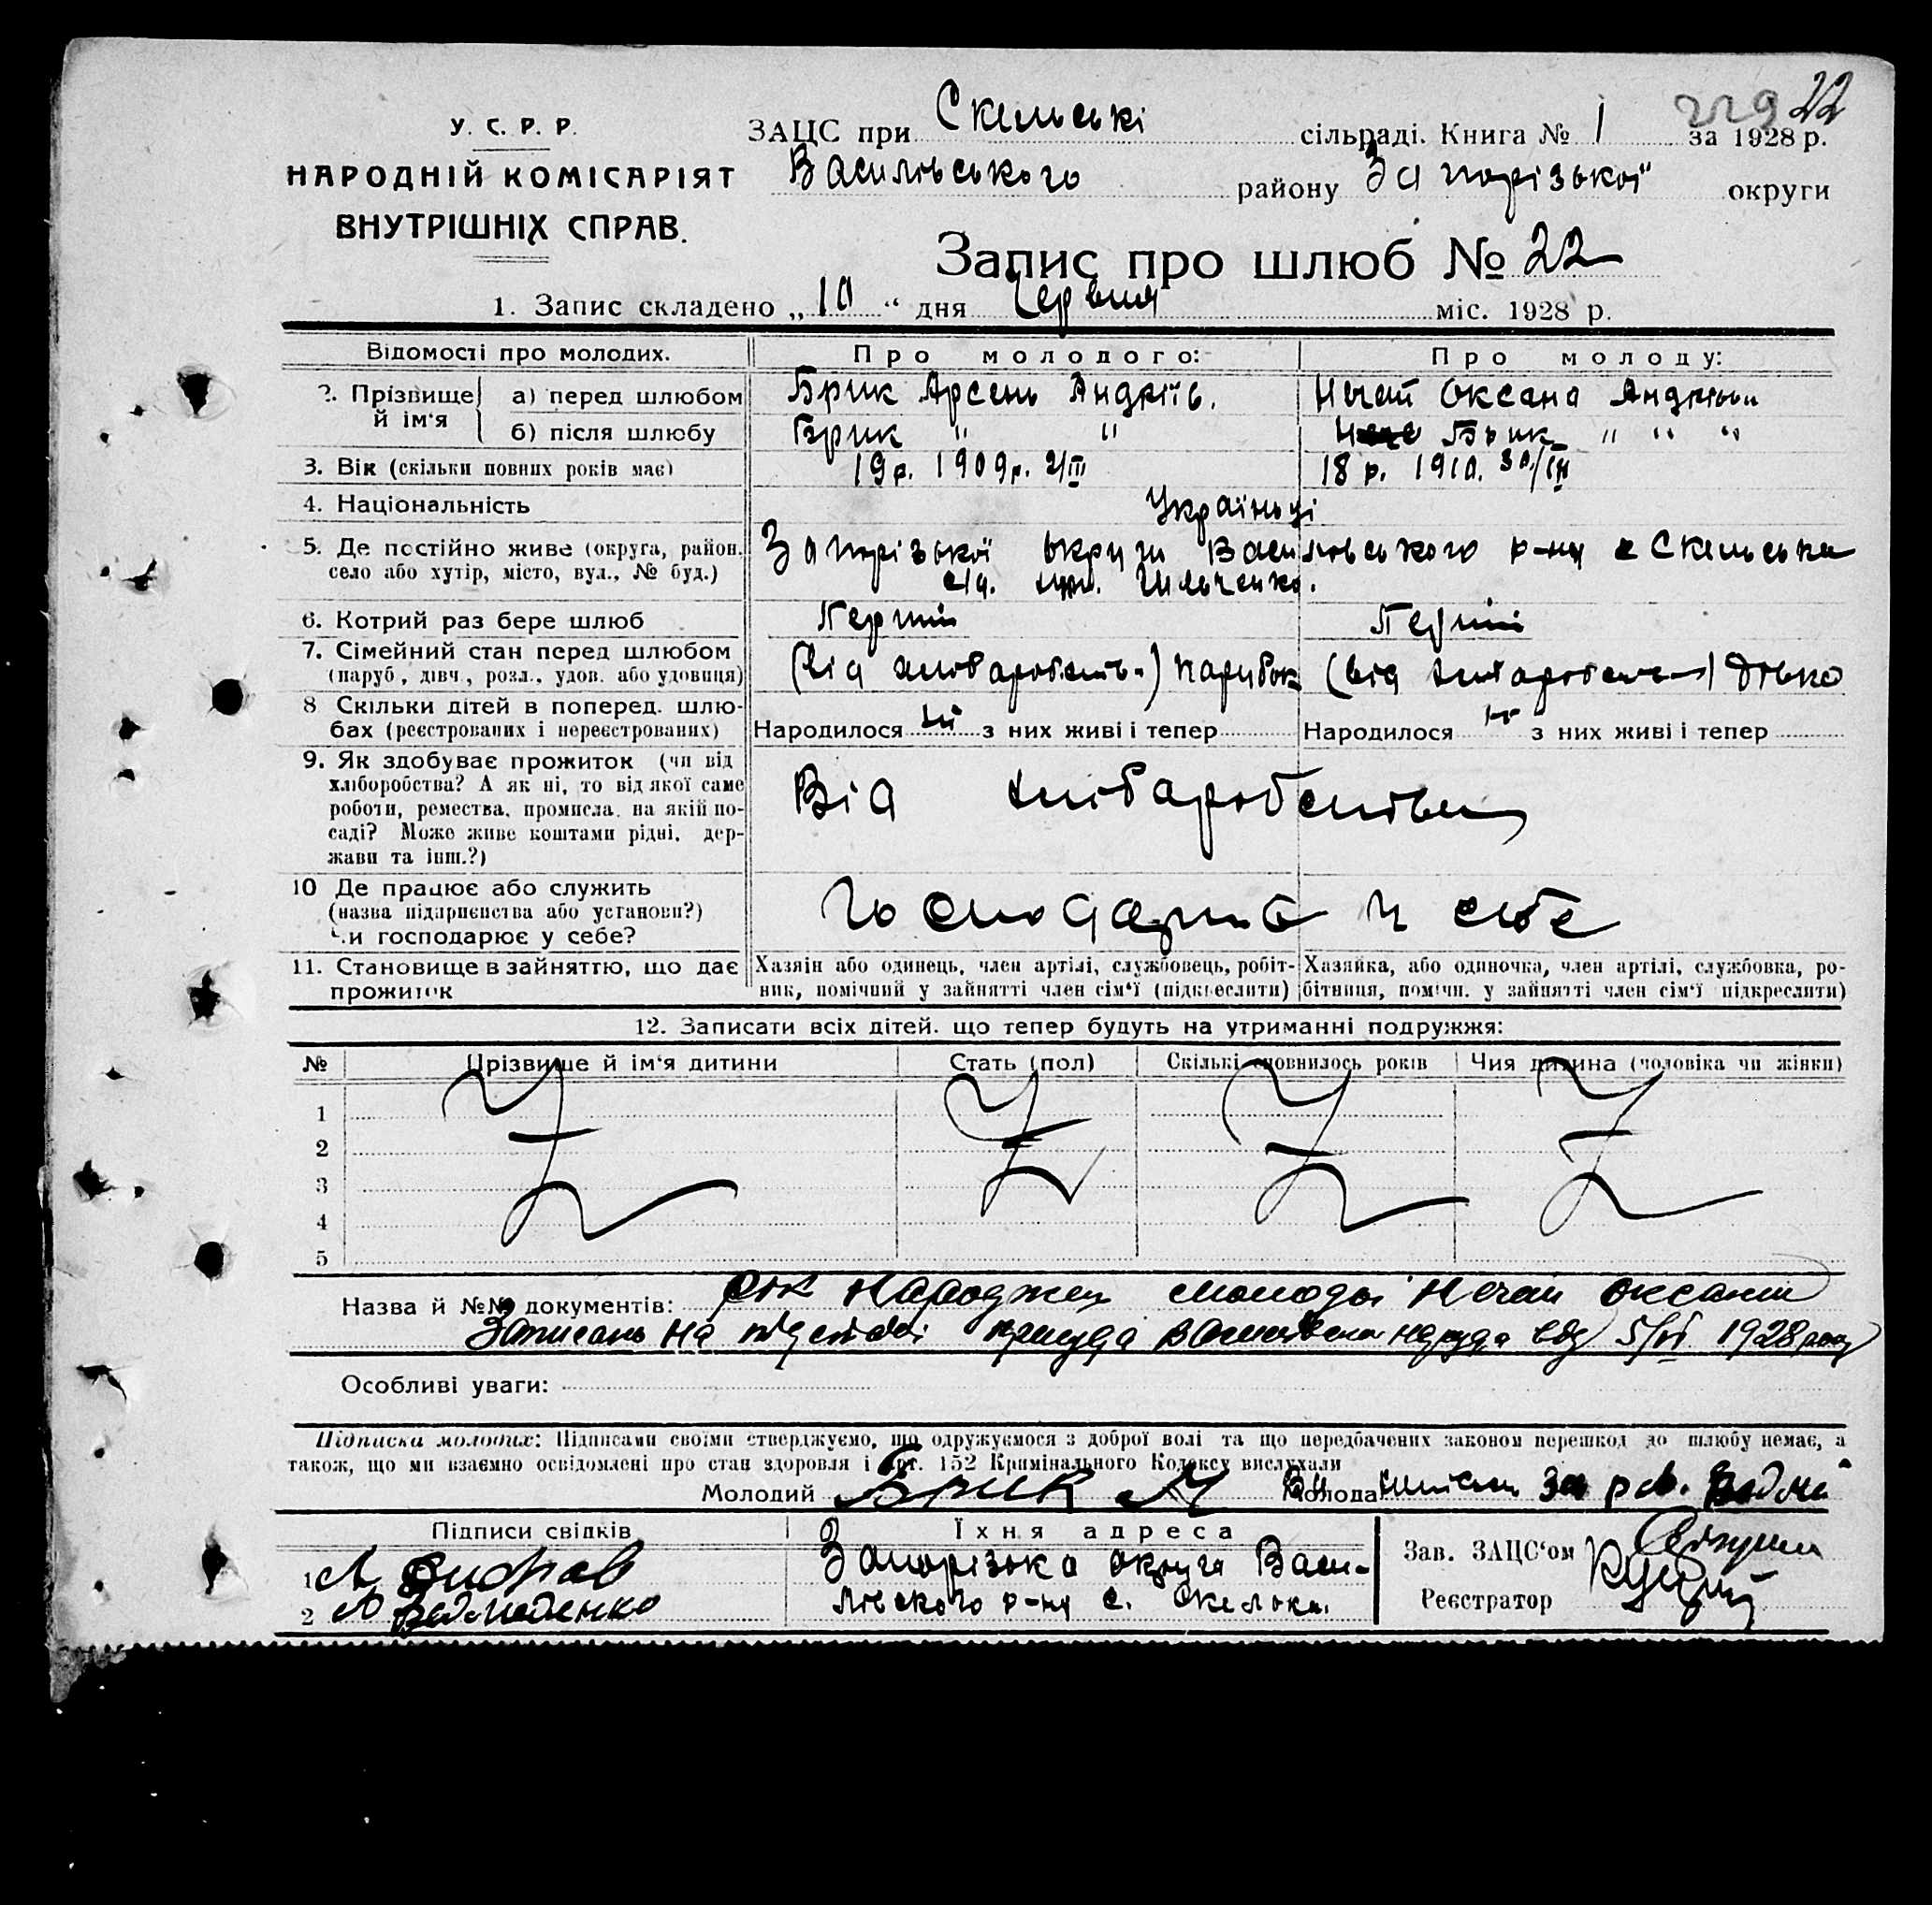 229 22
У. С. Р. Р.
НАРОДНІЙ КОМІСАРІЯТ
ВНУТРІШНІХ СПРАВ.
ЗАЦС при Скельські сільраді. Книга № 1 за 1928 р.
Василівського району Запорізької округи
Запис про шлюб № 22
1. Запис складено „10“ дня Червня міс. 1928 р.
Відомості про молодих. Про молодого: Про молоду:
2. Прізвище й ім‘я а) перед шлюбом Брик Арсень Андріїв. Нечай Оксана Андріївн
б) після шлюбу Брик " " Брик " " "
3. Вік (скільки повних років має) 19 р. 1909 р. 2/III 18 р. 1910. 30/III
4. Національність Українці
5. Де постійно живе (округа, район, село або хутір, місто, вул., № буд.) Запорізької округи Василівського р-ну с Скельська
6. Котрий раз бере шлюб Перший Перший
7. Сімейний стан перед шлюбом (паруб., дівч., розл., удов. або удовиця) парубок
8 Скільки дітей в поперед. шлюбах (реєстрованих і нереєстрованих) Народилося з них живі і тепер Народилося з них живі і тепер
9. Як здобуває прожиток (чи від
хліборобства? А як ні, то від якої саме
роботи, ремества, промисла, на якій по-
саді? Може живе коштами рідні, дер-
жави та інш.?)
Від хлібаробства
10 Де працює або служить
(назва підприємства або установи?)
Чи господарює у себе?
Господарює у себе
11. Становище в зайняттю, що дає прожиток
Хазяїн або одинець, член артілі, службовець, робіт-
ник, помічний у зайнятті член сім‘ї (підкреслити)
Хазяйка, або одиночка, член артілі, службовка, ро-
бітниця, помічн. у зайнятті член сім‘ї підкреслити)
12. Записати всіх дітей, що тепер будуть на утриманні подружжя:
№ Прізвище й ім‘я дитини Стать (пол) Скількі сповнилось років Чия дитина (чоловіка чи жінки)
1
2
3
4
5
Назва й №№ документів: рік народжен молодої Нечай Оксани
Записано на підставі 5/VI 1928 року
Особливі уваги:
Підписка молодих: Підписами своїми стверджуємо, що одружуємося з доброї волі та що передбачених законом перешкод до шлюбу немає, а
також, що ми взаємно освідомлені про стан здоровля і арт. 152 Кримінального Кодексу вислухали
Молодий Брик А Молода
Підписи свідків Їхня адреса
1 А
2 А
Запорізька округа Васи-
лівського р-ну с. Скельки.
Зав. ЗАЦС‘ом
Реєстратор